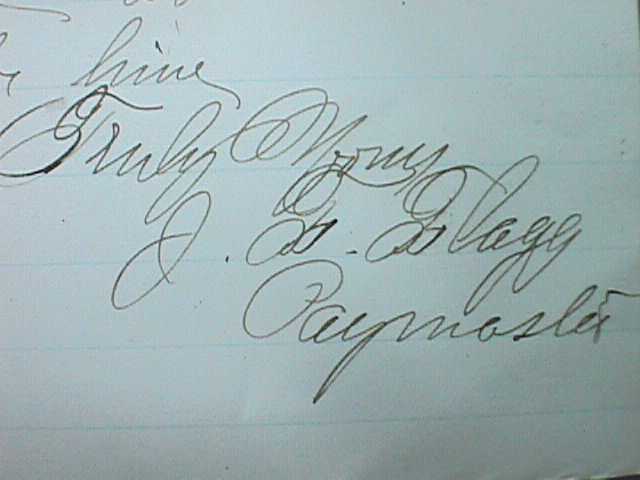 him
Truly Yours
J. F. Flagg
Paymaster